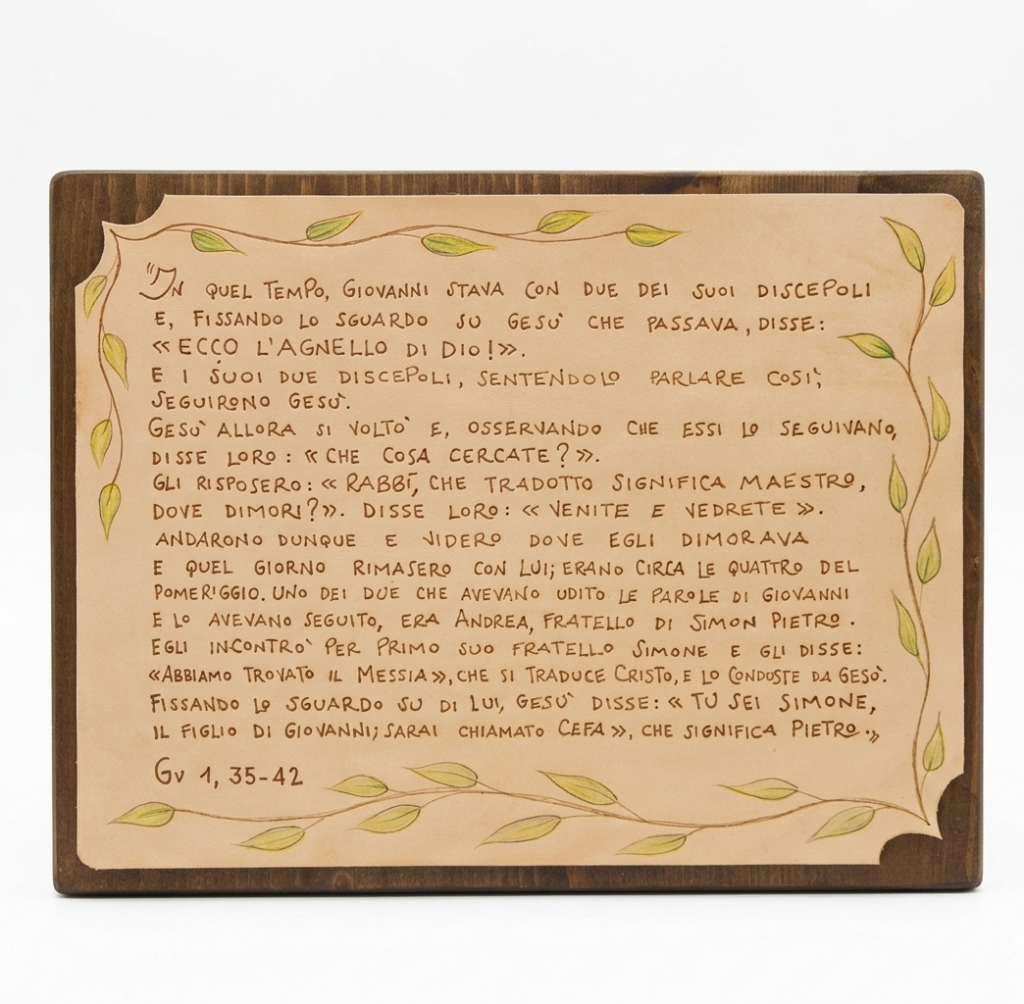 "In QUEL TEMPO, GIOVANNI STAVA CON DUE DEI SUOI DISCEPOLI
E, FISSANDO LO SGUARDO SU GESU' CHE PASSAVA, DISSE:
«ECCO L'AGNELLO DI DIO!».
E I SUOI DUE DISCEPOLI, SENTENDOLO PARLARE COSI',
SEGUIRONO GESU'.
GESU' ALLORA SI VOLTO' E, OSSERVANDO CHE ESSI LO SEGUIVANO,
DISSE LORO: «CHE COSA CERCATE?».
GLI RISPOSERO: «RABBÌ, CHE TRADOTTO SIGNIFICA MAESTRO,
DOVE DIMORI?». DISSE LORO: «VENITE E VEDRETE».
ANDARONO DUNQUE E VIDERO DOVE EGLI DIMORAVA
E QUEL GIORNO RIMASERO CON LUI; ERANO CIRCA LE QUATTRO DEL
POMERIGGIO. UNO DEI DUE CHE AVEVANO UDITO LE PAROLE DI GIOVANNI
E LO AVEVANO SEGUITO, ERA ANDREA, FRATELLO DI SIMON PIETRO.
EGLI INCONTRO' PER PRIMO SUO FRATELLO SIMONE E GLI DISSE:
«ABBIAMO TROVATO IL MESSIA», CHE SI TRADUCE CRISTO, E LO CONDUSTE DA GESU'.
FISSANDO LO SGUARDO SU DI LUI, GESU' DISSE: «TU SEI SIMONE,
IL FIGLIO DI GIOVANNI; SARAI CHIAMATO CEFA», CHE SIGNIFICA PIETRO."
Gv 1, 35-42